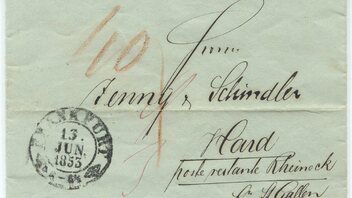 40
Herrn
Jenny & Schindler
Hard
poste restante Rheineck
Ct. St Gallen
FRANKFURT
13
JUN.
1853